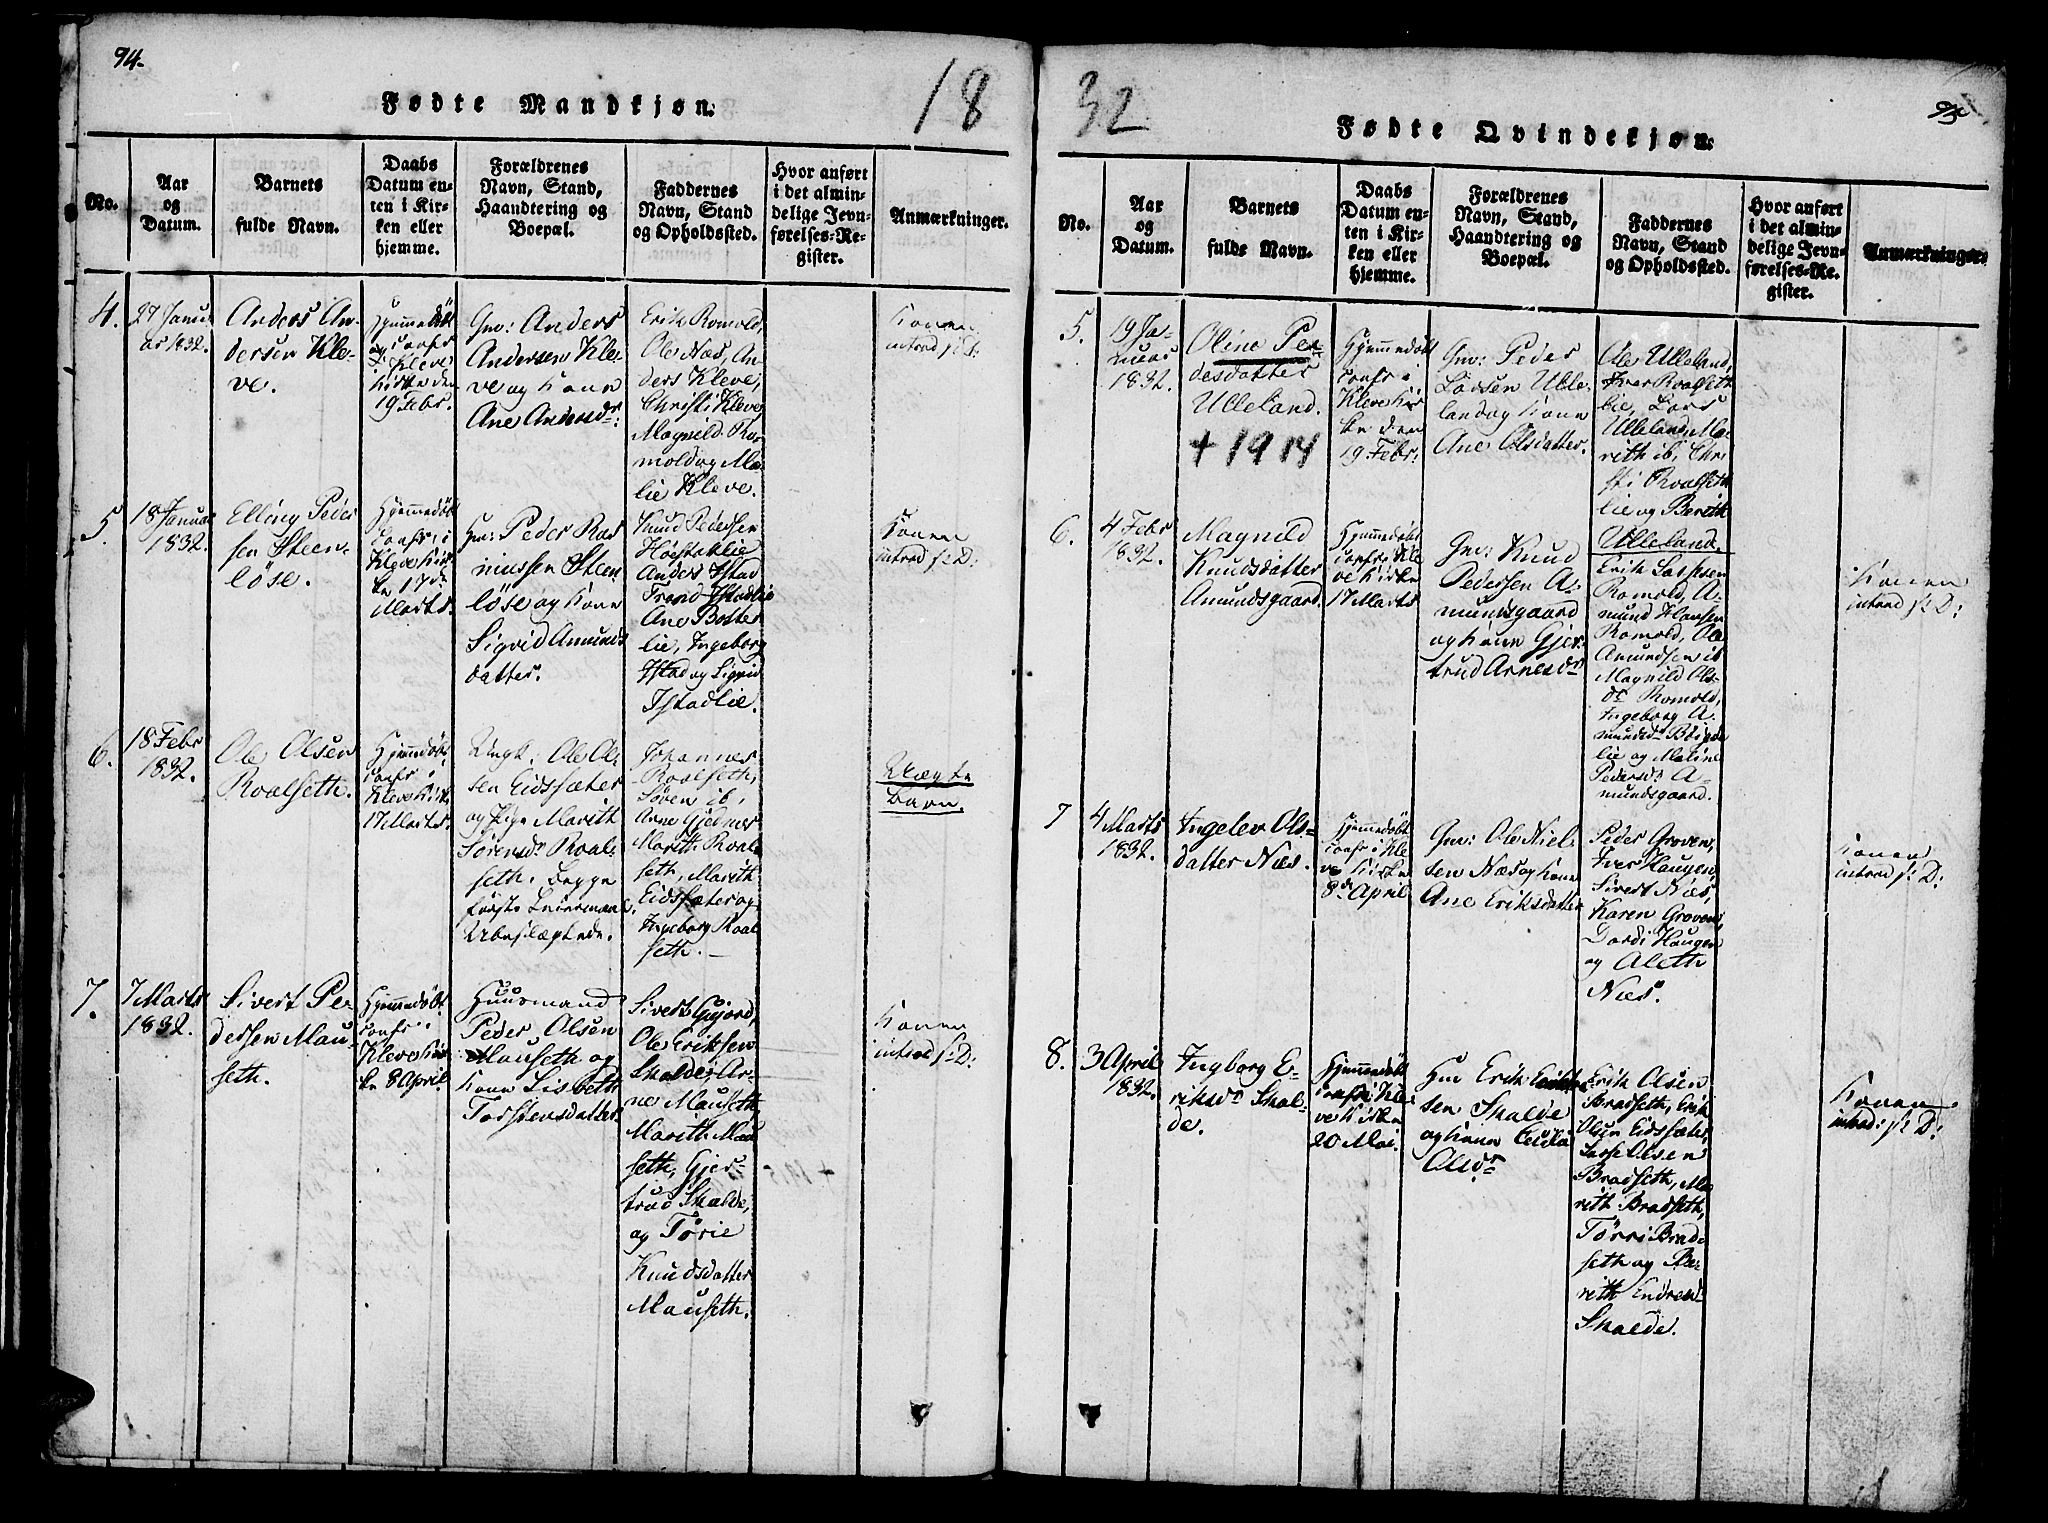 94.
Fødte Mandkjøn.
18
No.
Aar
og
Datum.
Barnets
fulde Navn.
Daabs
Datum en-
ten i Kir-
ken eller
hjemme.
Forældrenes
Navn, Stand,
Haandtering og
Boepæl.
Faddernes
Navn, Stand
og Opholdssted.
Hvor anført
i det almin-
delige Jevn-
førelses-Re-
gister.
Anmærkninger.
4.
27 Janu
ar 1832.
Anders An-
dersen Kle-
ve.
Hjemmedøbt
confr
i Kleve
Kirke den
19 Febr.
Gm: Anders
Andersen Kle-
ve og Kone
Ane Andersdr:
Erik Romold,
Ole Næs, An-
ders Kleve,
Christi Kleve,
Magnild Ro-
mold og Ma-
lie Kleve.
Konen
introd f: D:
5.
18 Januar
1832.
Elling Peder
sen Steen-
löse.
Hjemmedöbt
confr: i
Kleve Kir-
ke 17de
Marts.
Gm: Peder Ras
mussen Steen
löse og Kone
Sigrid Amunds
datter.
Knud Pedersen
Høistadlie
Anders Istad
Trond Istadlie
Ane Botter
lie, Ingeborg
Istad og Sigrid
Istadlie.
Konen
introd f: D:
6.
18 Febr
1832.
Ole Olsen
Roalseth.
Hjemmedøbt
confr i
Kleve Kirk
17 Marts.
Ungk. Ole Ol-
sen Eidssæter
og Pige Marith
Sørensdr Roal-
seth. begge
første Leiermaal.
Ubesl
Johannes
Roalseth,
Søren ib,
Arne Gjednes
Marith Roal
seth, Marith
Eidssæter og
Ingeborg Roal
seth.
Uægte
Barn.
7.
7 Marts
1832.
Sivert Pe-
dersen Mau-
seth.
Hjemmedöbt
confr i
Kleve Kir
ke 8 April
Huusmand
Peder Olsen
Mauseth og
Kone Lisbeth
Torstensdatter.
Sivert Gujord,
Ole Eriksen
Skalde, Ar-
ne Mauseth,
Marith Mau
seth, Gjer-
trud Skalde,
og Törie
Knudsdatter
Mauseth.
Konen
introd f: D:
32
Fødte Qvindekjøn.
No.
Aar
og
Datum.
Barnets
fulde Navn.
Daabs
Datum en-
ten i Kir-
ken eller
hjemme.
Forældrenes
Navn, Stand,
Haandtering og
Boepæl.
Faddernes
Navn, Stand
og Opholdssted.
Hvor anført
i det almin-
delige Jevn-
førelses-Re-
gister.
Anmærkninger.
5.
19 Ja-
nuar
1832.
Oline Pe-
dersdatter
Ulleland.
+ 1914
Hjemmedöbt
confr i
Kleve Kir
ke den
19 Febr.
Gm: Peder
Larsen Ulle-
land og Kone
Ane Olsdatter.
Ole Ulleland,
Iver Roalseth
lie, Lars
Ulleland, Ma-
rith ib, Chri
sti Roalseth
lie og Berith
Ulleland.
6.
4 Febr
1832.
Magnild
Knudsdatter
Amundsgaard.
Hjemmedöbt
confr i Kle
ve Kirke
17 Marts
Gm: Knud
Pedersen A-
mundsgaard
og Kone Gjer-
trud Arnesdr
Erik Lassesen
Romold, A-
mund Hansen
Romold, Ole
Amundsen ib
Magnild Ols-
dr Romold,
Ingeborg A-
mundsdr
lie og Maline
Pedersdr A-
mundsgaard.
Konen
introd f: D:
7
4 Marts
1832.
Ingelev Ols-
datter Næs.
Hjemmedøbt
confr i Kle
ve Kirke
8de April
Gm: Ole Niel
sen Næs og Kone
Ane Eriksdatter
Peder Groven,
Iver Haugen,
Sivert Næs,
Karen Groven,
Dordi Haugen
og Aleth
Næs.
Konen
introd f: D:
8.
3 April
1832.
Ingborg E-
riksdr Skal-
de.
Hjemmedöbt
confr i Kle
ve Kirke
20 Mai.
Gm Erik Erik
sen Skalde
og Kone Cecilia
Olsdr
Erik Olsen
Bradseth, Erik
Olsen Eidssæter,
Lasse Olsen
Bradseth, Ma
rith Bradseth,
Törri Brad-
seth og Be-
rith Endresdr
Skalde.
Konen
introd: f: D: